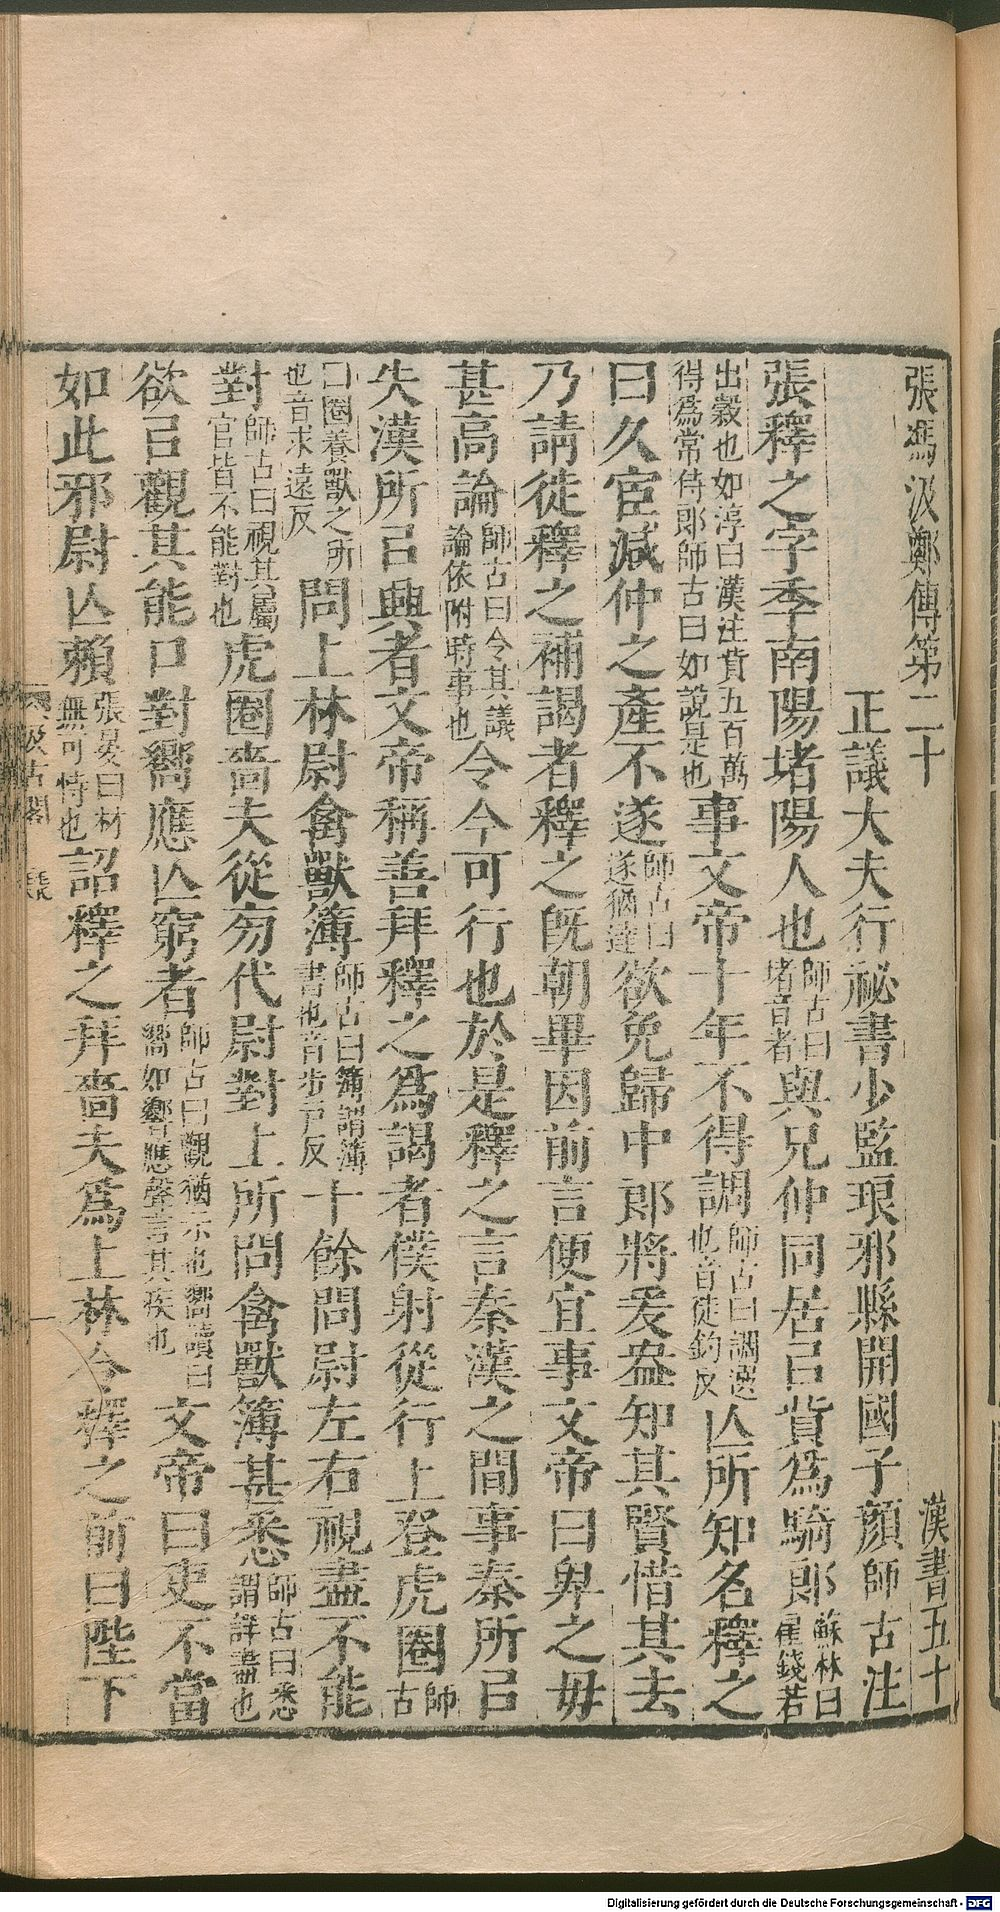 張馮汲鄭傳第二十 漢書五十
正議大夫行祕書少監琅邪縣開國子顏師古注
張釋之字季南陽堵陽人也師古曰堵音者與兄仲同居㠯貲爲騎郎蘇林曰雇錢若
出穀也如淳曰漢注貲五百萬得爲常侍郎師古曰如說是也事文帝十年不得調師古曰調選也音徒釣反亾所知名釋之
曰久宦減仲之產不遂師古曰遂猶達欲免歸中郎將爰盎知其賢惜其去
乃請徙釋之補謁者釋之旣朝畢因前言便宜事文帝曰卑之毋
甚高論師古曰令其議論依附時事也令今可行也於是釋之言秦漢之間事秦所㠯
失漢所㠯興者文帝稱善拜釋之爲謁者僕射從行上登虎圈師古
曰圈養獸之所也音求遠反問上林尉禽獸簿師古曰簿謂簿書也音步戸反十餘問尉左右視盡不能
對師古曰視其屬官皆不能對也虎圈嗇夫從旁代尉對上所問禽獸簿甚悉師古曰悉謂詳盡也
欲㠯觀其能口對嚮應亾窮者師古曰觀猶示也嚮讀曰嚮如響應聲言其疾也文帝曰吏不當
如此邪尉亾賴張晏曰材無可恃也詔釋之拜嗇夫爲上林令釋之前曰陛下
汲古閣
Digitalisierung gefördert durch die Deutsche Forschungsgemeinschaft - DFG